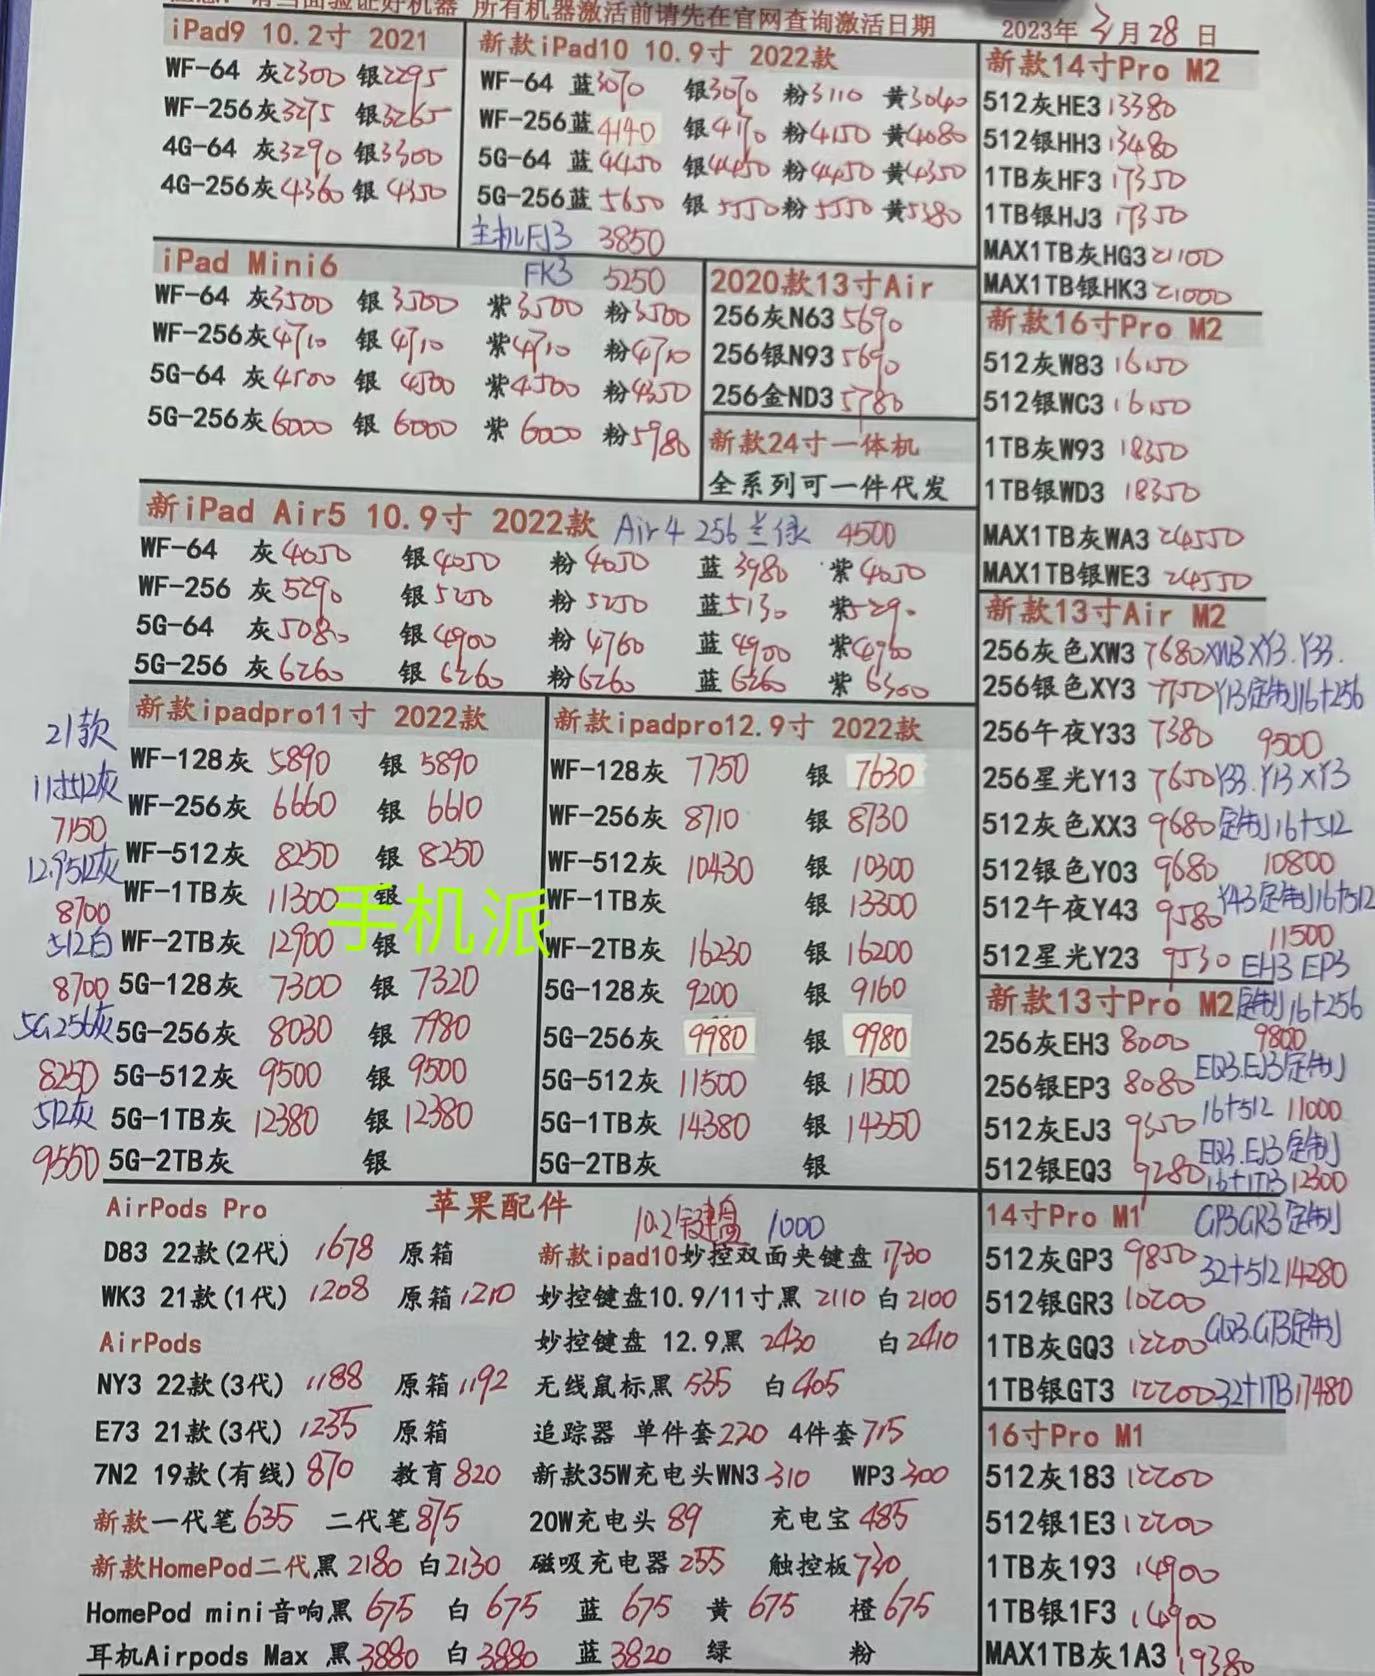 所有机器激活前请先在官网查询激活日期
2023年 3月 28 日
iPad9 10.2寸 2021
WF-64 灰2300 银2295
WF-256灰3275 银3265
4G-64 灰3290 银3300
4G-256灰4360 银 4350
新款iPad10 10.9寸 2022款
WF-64 蓝3070 银3070 粉3110 黄3040
WF-256蓝4140 银4170 粉4150 黄4080
5G-64 蓝4450 银4450 粉4450 黄4350
5G-256蓝5650 银5550粉5550 黄5380
主机FJ3 3850
FK3 5250
iPad Mini6
WF-64 灰3500 银3500 紫3500 粉3500
WF-256灰4710 银4710 紫4710 粉4710
5G-64 灰4500 银 4500 紫4500 粉4350
5G-256灰6000 银 6000 紫 6000 粉5980
2020款13寸Air
256灰N63 5690
256银N93 5690
256金ND3 5780
新款24寸一体机
全系列可一件代发
新iPad Air5 10.9寸 2022款 Air4 256兰绿 4500
WF-64 灰4050 银4050 粉4050 蓝3980 紫4050
WF-256 灰5290 银5250 粉5250 蓝5130 紫5290
5G-64 灰5080 银4900 粉4760 蓝4900 紫4760
5G-256 灰6260 银6260 粉6260 蓝6260 紫6300
新款ipadpro11寸 2022款
WF-128灰 5890 银 5890
WF-256灰 6660 银 6610
WF-512灰 8250 银 8250
WF-1TB灰 11300 银
WF-2TB灰 12900 银
5G-128灰 7300 银 7320
5G-256灰 8030 银 7980
5G-512灰 9500 银 9500
5G-1TB灰 12380 银 12380
5G-2TB灰 银
21款
11寸512灰
7150
12.9512灰
8700
512白
8700
5G256灰
8250
512灰
9550
手机派
新款ipadpro12.9寸 2022款
WF-128灰 7750 银 7630
WF-256灰 8710 银 8730
WF-512灰 10430 银 10300
WF-1TB灰 银 13300
WF-2TB灰 16230 银 16200
5G-128灰 9200 银 9160
5G-256灰 9980 银 9980
5G-512灰 11500 银 11500
5G-1TB灰 14380 银 14350
5G-2TB灰 银
新款14寸Pro M2
512灰HE3 13380
512银HH3 13480
1TB灰HF3 17350
1TB银HJ3 17350
MAX1TB灰HG3 21100
MAX1TB银HK3 21000
新款16寸Pro M2
512灰W83 16150
512银WC3 16150
1TB灰W93 18350
1TB银WD3 18350
MAX1TB灰WA3 24550
MAX1TB银WE3 24550
新款13寸Air M2
256灰色XW3 7680 XW3 XY3.Y33.
256银色XY3 7750 Y13定制16+256
256午夜Y33 7380 9500
256星光Y13 7650 Y33.Y13 XY3
512灰色XX3 9680 定制16+512
512银色Y03 9680 10800
512午夜Y43 9580 Y43定制16+512
11500
512星光Y23 9530 EH3 EP3
新款13寸Pro M2 定制16+256
256灰EH3 8000 9800
256银EP3 8080 EQ3.EJ3定制
16+512 11000
512灰EJ3 9350 EQ3.EJ3定制
512银EQ3 9280 16+1TB 12300
14寸Pro M1 GP3GR3定制
512灰GP3 9850 32+512 14280
512银GR3 10200
1TB灰GQ3 12200 GQ3.GT3定制
1TB银GT3 12200 32+1TB 17480
16寸Pro M1
512灰183 12200
512银1E3 12200
1TB灰193 14900
1TB银1F3 14900
MAX1TB灰1A3 19380
苹果配件
AirPods Pro
D83 22款(2代) 1678 原箱
WK3 21款(1代) 1208 原箱1210
AirPods
NY3 22款(3代) 1188 原箱1192
E73 21款(3代) 1235 原箱
7N2 19款(有线) 870 教育820
新款一代笔635 二代笔875
新款HomePod二代黑2180 白2130
10.2键盘 1000
新款ipad10妙控双面夹键盘 1730
妙控键盘10.9/11寸黑 2110 白2100
妙控键盘 12.9黑 2430 白2410
无线鼠标黑 535 白405
追踪器 单件套220 4件套715
新款35W充电头WN3 310 WP3 300
20W充电头 89 充电宝 485
磁吸充电器 255 触控板730
HomePod mini音响黑 675 白 675 蓝 675 黄 675 橙675
耳机Airpods Max 黑3880 白3880 蓝 3820 绿 粉